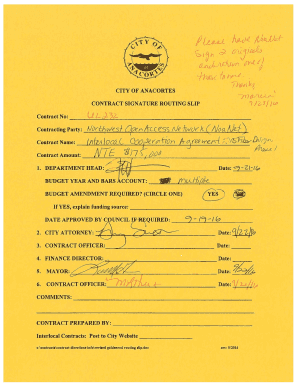 Please have NoaNet
sign 2 originals
and return one of
them to me.
Thanks
9/27/16
CITY OF
ANACORTES
CITY OF ANACORTES
CONTRACT SIGNATURE ROUTING SLIP
Contract No:
Contracting Party: Northwest Open Access Network (NoaNet)
Contract Name: Interlocal Cooperation Agreement : Fiber Design
Phase 1
Contract Amount: NTE $175,000
1. DEPARTMENT HEAD: Date: 9-21-16
BUDGET YEAR AND BARS ACCOUNT: multiple
BUDGET AMENDMENT REQUIRED? (CIRCLE ONE) YES
If YES, explain funding source:
DATE APPROVED BY COUNCIL IF REQUIRED: 9-19-16
2. CITY ATTORNEY: Date: 9/22/16
3. CONTRACT OFFICER: Date:
4. FINANCE DIRECTOR: Date:
5. MAYOR: Date:
6. CONTRACT OFFICER: Date:
COMMENTS:
CONTRACT PREPARED BY:
Interlocal Contracts: Post to City Website